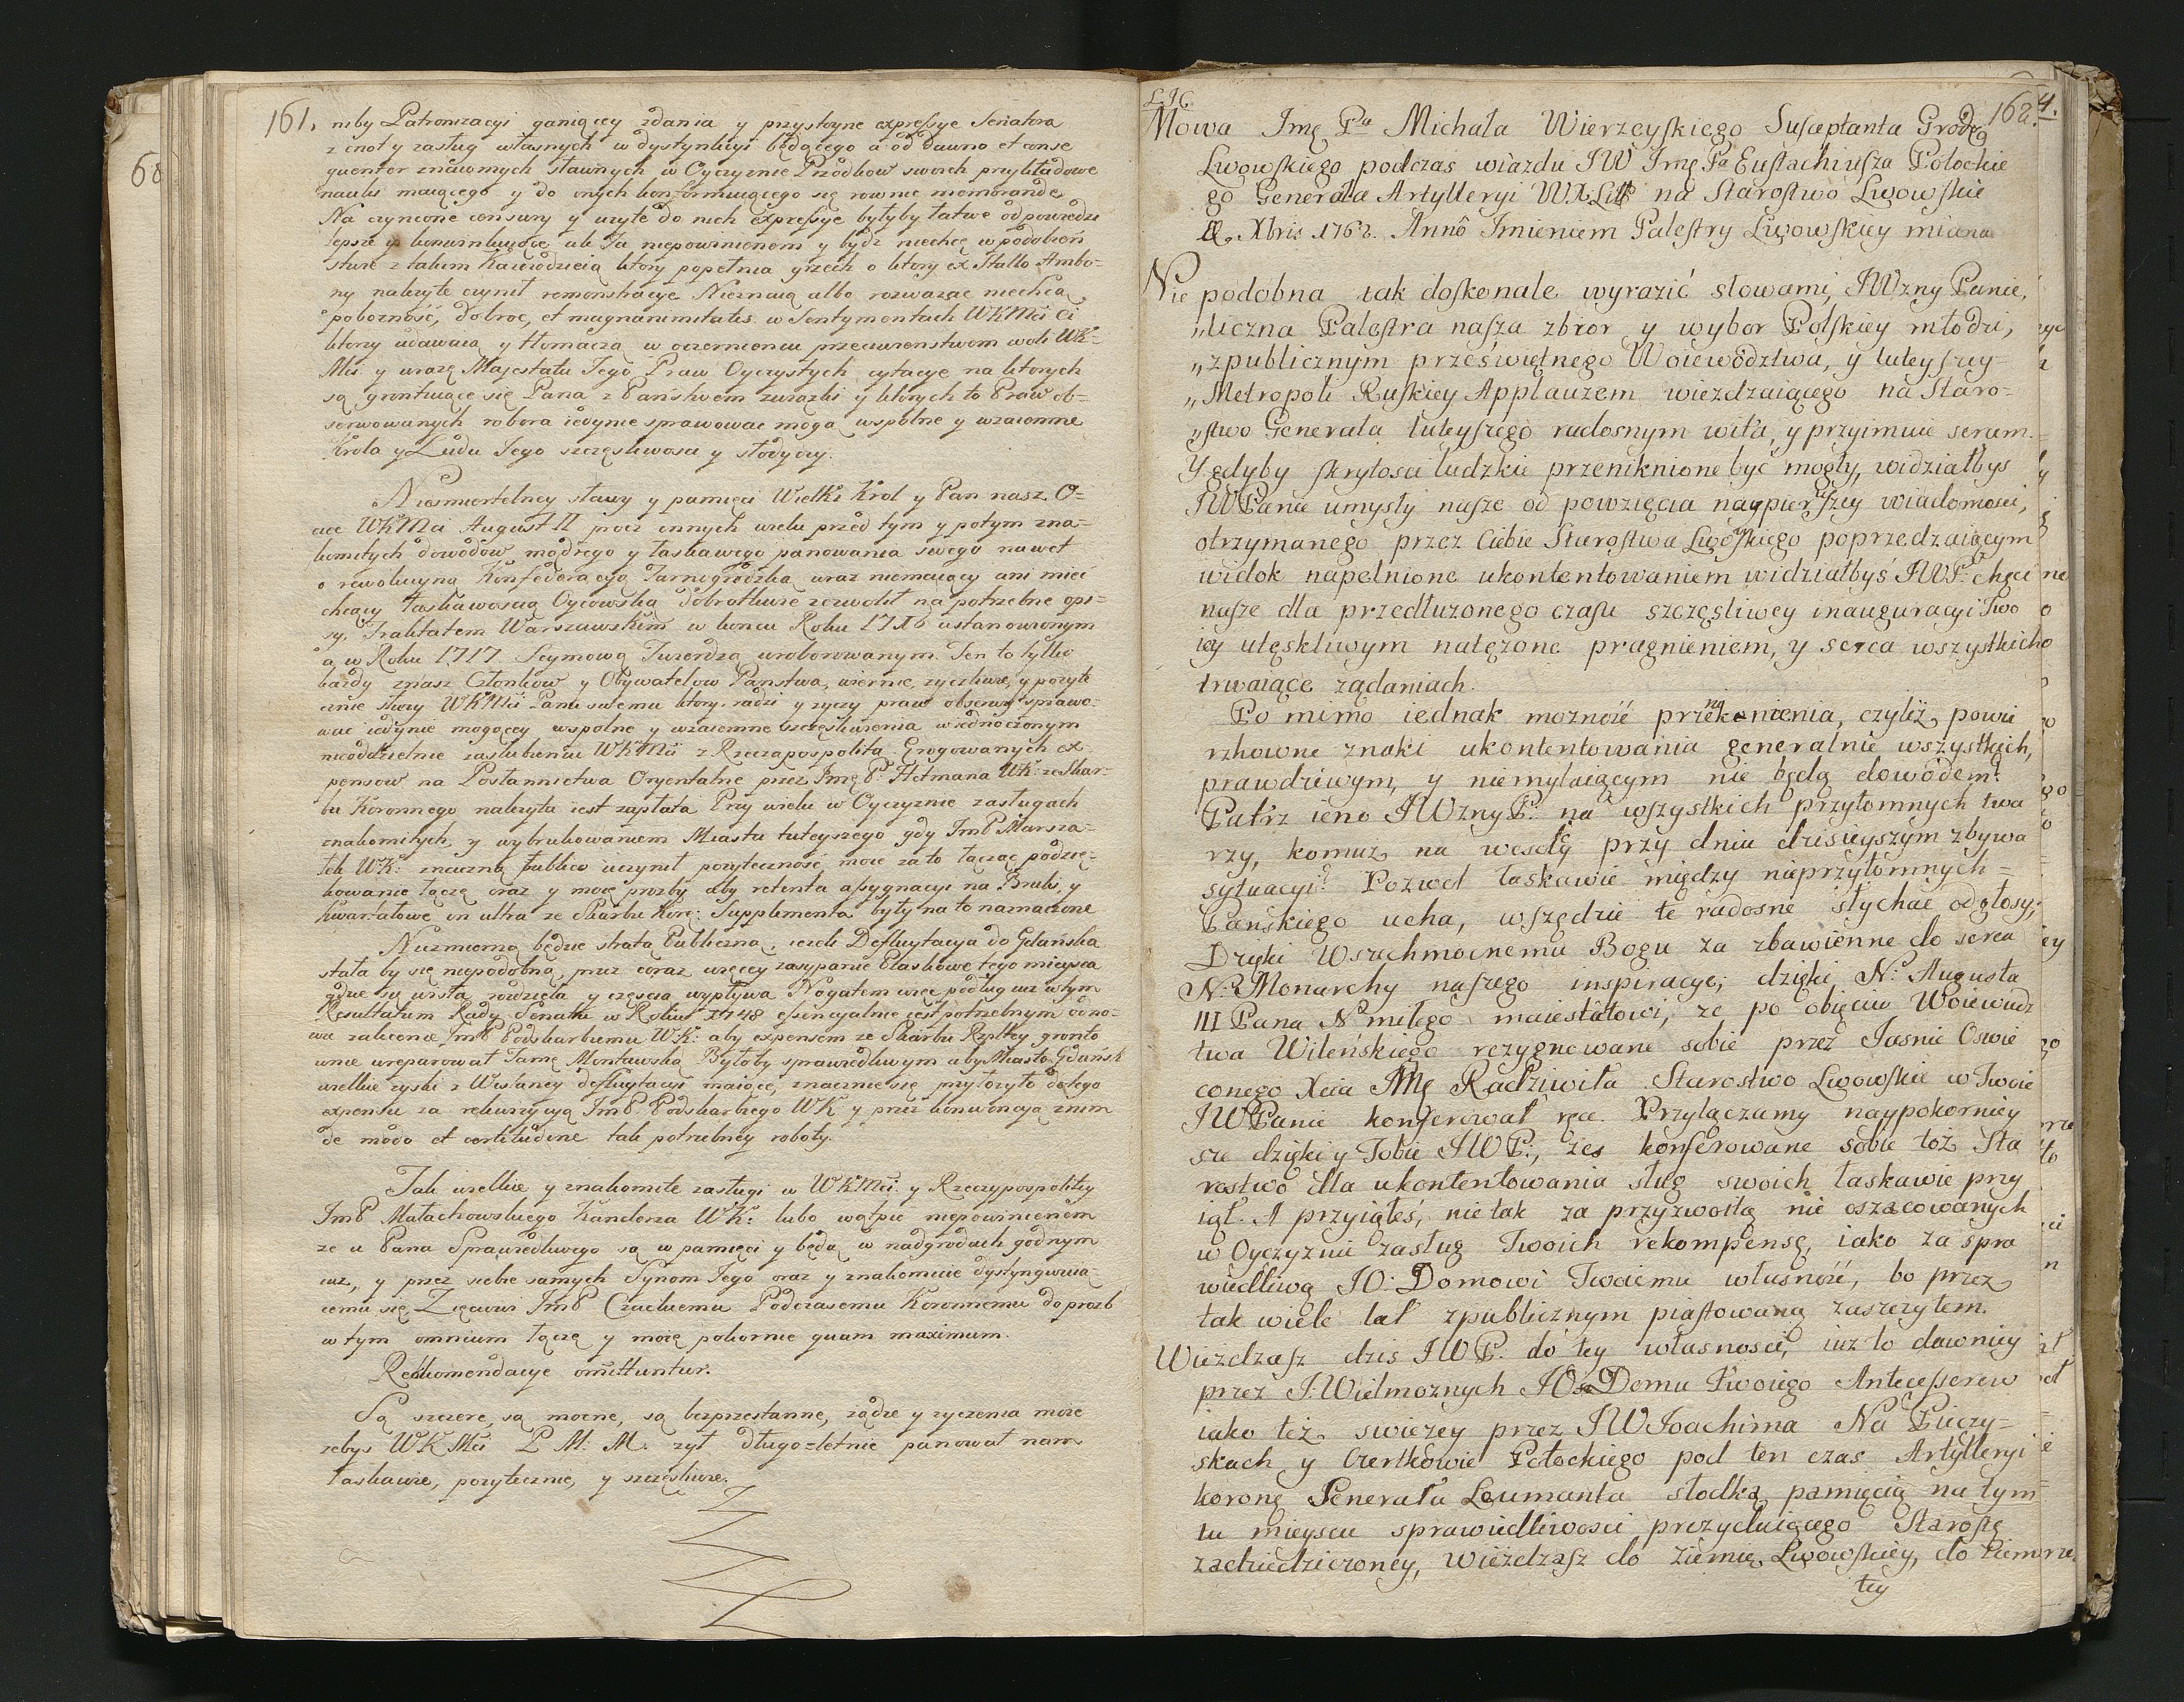 161.
niby Patronizacyi ganiącey zdania y przystoyne expressye Senatora
z cnot y zasług własnych w dystynkcyi będącego a od dawno et conse
quenter znaiomych sławnych w Oyczyznie Przodkow swoich przykładowe
nauki maiącego y do onych konformuiącego się rownie memorande
Na czynione censury y użyte do nich expressye byłyby łatwe odpowiedzi
lepsze y konwinkuiące ale Ja niepowinienem y bydź niechcę w podobień
stwie z takim Kaznodzieią ktory popełnia grzech o ktory ex Stallo Ambo-
ny należyte czynił remonstracye Nieznaią albo rozwazac niechcą
pobozność, dobroc, et magnanimitatis w Sentymentach WKMci ci
ktorzy udawaią y tłomaczą w oczernieniu przeciwienstwem woli WK-
Mci y urazę Majestatu Jego Praw Oyczystych cytacye na ktorych
są gruntuiące się Pana z Państwem związki y ktorych to Praw ob-
serwowanych robora iedynie sprawować mogą wspolne y wzaiemne
Krola y Ludu Jego szczęśliwosci y słodyczy.
Niesmiertelney sławy y pamięci Wielki Krol y Pan nasz O-
ciec WKMci August II procz innych wielu przed tym y potym zna-
komitych dowodow mądrego y łaskawego panowania swego nawet
o rewolucyiną Konfederacyą Tarnogrodzką uraz niemaiący ani mieć
chcący łaskawoscią Oycowską dobrotliwie zezwolił na potrzebne opi-
sy, Traktatem Warszawskim w koncu Roku 1716 ustanowionym
a w Roku 1717 Seymową Twierdzą uroborowanym. Ten to tylko
kazdy z nasz Członkow y Obywatelow Państwa, wiernie, zyczliwie, y pozyte
cznie słuzy WKMci Panu swemu ktory radzi y zyczy praw obserwę sprawo-
wac iedynie mogącey wspolne y wzaiemne uszczęsliwienia w iednoczonym
nieoddzielnie zaslubieniu WKMci z Rzecząpospolitą Erogowanych ex-
pensow na Posłannictwa Oryentalne przez Jmę Pa Hetmana WK: ze Skar-
bu Koronnego nalezyta iest zapłata Przy wielu w Oyczyznie zasługach
znakomitych y wybrukowaniem Miasta tuteyszego gdy JmP Marsza-
łek WK: znaczną publico uczynił pozytecznosc moie za to łącząc podzię-
kowanie łączę oraz y moie prozby aby retenta assygnacyi na Bruki, y
Kwartałowe in ultra ze Skarbu Korę: Supplementa były na to naznaczone
Niezmierną będzie stratą Publiczną, ieżeli Defluytacya do Gdańska
stała by się niepodobną, przez coraz więcey zasypanie Piaskowe tego mieysca
gdzie się wisła rozdziela y częscią wypływa Nogatem więc podług iuz w tym
Resultatum Rady Senatu w Roku 1748 essencyalnie iest potrzebnym odno-
wic zalecenie JmP Podskarbiemu WK: aby expensem ze Skarbu Rzpltey gronto
wnie ureparował Tamę Montawską Byłoby sprawiedliwym aby Miasto Gdańsk
wielkie zyski z Wislaney defluytacyi maiące, znacznie się przyłozyło do tego
expensu za rekwizycyą JmP Podskarbiego WK y przez konwencyą z nim
de modo et certitudine tak potrzebney roboty.
Tak wielkie y znakomite zasługi w WKMci y Rzeczypospolitey
JmP Małachowskiego Kanclerza WK: lubo wątpić niepowinienem
ze u Pana Sprawiedliwego są w pamięci y będą w nadgrodach godnym
iuz, y przez siebie samych Synom Jego oraz y znakomicie dystyngwuią-
cemu się, Zięciowi JmP Czackiemu Podczaszemu Koronnemu do prozb
w tym omnium łączę y moię pokornie quam maximum.
Rekkomendacye omittuntur.
Są szczere, są mocne, są bezprzestanne, żądze y zyczenia moie
zebys WKMci P M: M. zył długo-letnie panował nam
łaskawie, pozytecznie, y szczęsliwie.
162.
Mowa Jmę Pa Michała Wierzeyskiego Susceptanta Grodzgo
Lwowskiego podczas wiazdu JW Jmę Pa Eustachiusza Potockie
go Generała Artylleryi WX: Litt na Starostwo Lwowskie
Xbris 1762. Annô Jmieniem Palestry Lwowskiey miana
Nie podobna tak doskonale wyrazić słowami, JWzny Panie,
„liczna Palestra nasza zbior y wybor Polskiey młodzi,
„z publicznym prześwietnego Woiewództwa, y tuteyszey
„Metropoli Ruskiey Applauzem wiezdzaiącego na Staro-
„stwo Generała tuteyszego radosnym wita, y przyimuie sercem.
Y gdyby skrytosci ludzkie przeniknione być mogły, widziałbys
JWPanie umysły nasze od powzięcia naypierwszey wiadomosci,
otrzymanego przez Ciebie Starostwa Lwowskiego poprzedzaiącym
widok napełnione ukontentowaniem widziałbyś JWPa chęci
nasze dla przedłuzonego czasu szczęsliwey inauguracyi Two
iey utęskliwym natęzone pragnieniem, y serca wszystkich
trwaiące ządaniach.
Po mimo iednak mozność przeniknienia, czyliż powie
rzhowne znaki ukontentowania generalnie wszystkich,
prawdziwym, y niemylaiącym nie będą dowodem?
Patrz ieno JWznyP: na wszystkich przytomnych twa
rzy, komuż na wesołą przy dniu dzisieyszym zbywa
sytuacyi? Pozwol łaskawie między nieprzytomnych
Pańskiego ucha, wszędzie te radosne słychać odgłosy;
Dzięki Wszechmocnemu Bogu za zbawienne do serca
N: Monarchy naszego inspiracye; dzięki N: Augusta
III Pana N miłego maiestatowi, ze po obięciu Woiewodz
twa Wileńskiego rezygnowane sobie przez Jasnie Oswie
conego Xcia JMę Radziwiła Starostwo Lwowskie w Twoie
JWPanie konferował ręce. Przyłączamy naypokorniey
sze dzięki y Tobie JWP:, zes konferowane sobie toż Sta
rostwo dla ukontentowania sług swoich łaskawie przy
iął. A przyiąłeś, nie tak za przyzwoitą nie oszacowanych
w Oyczyznie zasług Twoich rekompensę, iako za spra
wiedliwą JO: Domowi Twoiemu własność, bo przez
tak wiele lat z publicznym piastowaną zaszczytem.
Wiezdzasz dzis JWP. do tey własnosci, iuz to dawniey
przez J:Wielmoznych JO Domu Twoiego Antecessorow
iako też swiezey przez JWJoachima Na Pieczy-
skach y Czertkowie Potockiego pod ten czas Artylleryi
korone Generała Leumanta słodką pamięcią na tym
tu mieyscu sprawiedliwosci prezyduiącego Starostę
zadziedziczoney, wieżdzasz do ziemię Lwowskiey, do Ziem
tey